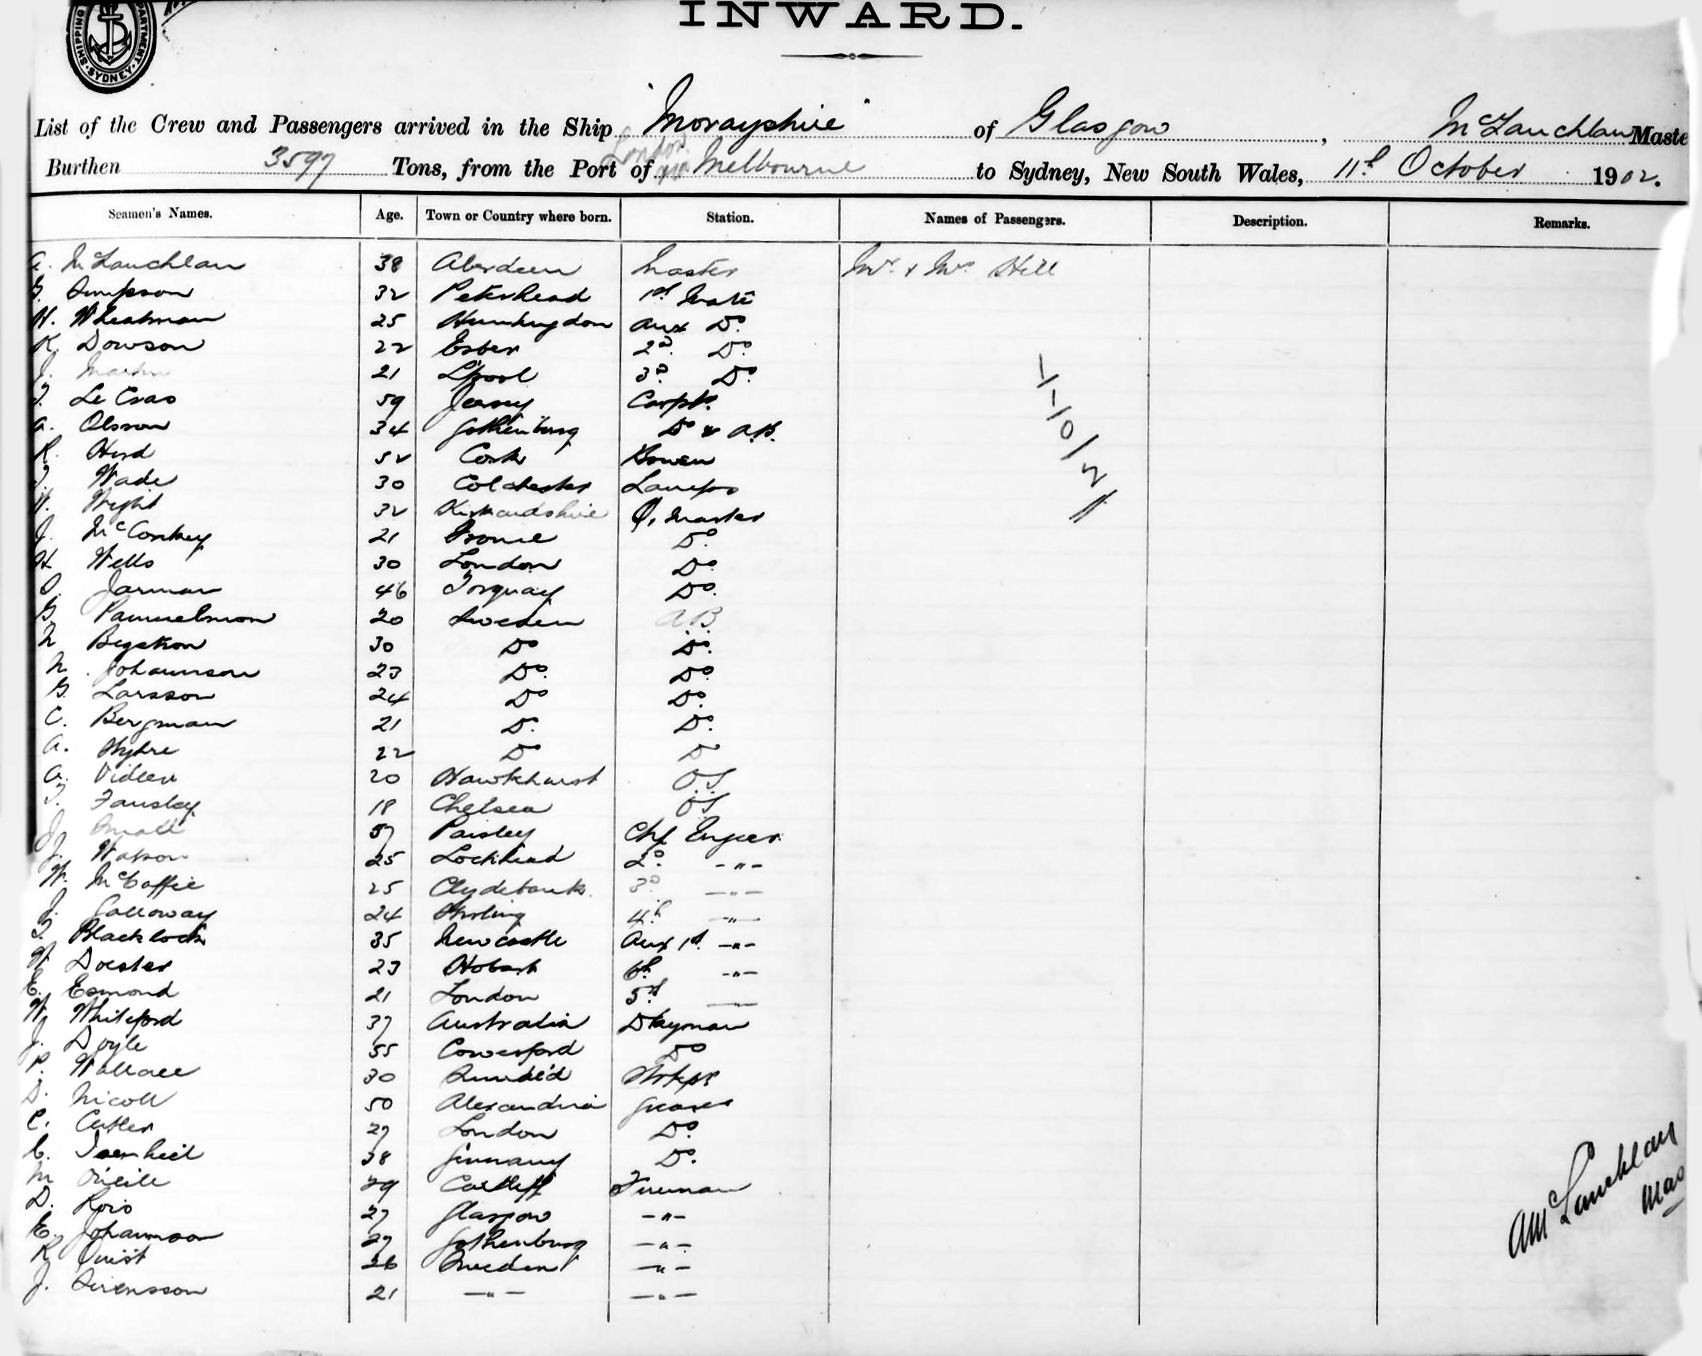 SHIPPING DEPARTMENT SYDNEY
INWARD.
List of the Crew and Passengers arrived in the Ship "Morayshire" of Glasgow, McLauchlan Maste
Burthen 3597 Tons, from the Port of London via Melbourne to Sydney, New South Wales, 11th October 1902.
Seamen's Names. Age. Town or Country where born. Station. Names of Passengers. Description. Remarks.
A. McLauchlan 38 Aberdeen Master Mr. & Mrs. Hill
G. Simpson 32 Peterhead 1st Mate
W. Wheatman 25 Huntingdon Aux Do.
K. Dowson 22 2d. Do.
J. Martin 21 L'pool 3d. Do.
Le Cras 59 Jersey Carptr.
A. Olsson 34 Gothenburg Do & A.B.
R. Hird 52 Cork Bowsn
T. Wade 30 Colchester Lamps
W. Wight 32 Q. Master
J. McConkey 21 Do.
H. Wells 30 London Do.
Jarman 46 Torquay Do.
20 Sweden A.B.
N. Bystrom 30 Do Do.
N. Johannson 23 Do. Do.
G. Larsson 24 Do Do.
C. Bergman 21 Do. Do.
A. 22 Do Do
A. Vidler 20 Hawkhurst O.S.
T. Fansley 18 Chelsea O.S.
J. Small 57 Paisley Chf Engeer.
J. Watson 25 Lochhead 2d. -"-
W. McCaffie 25 Clydebank. 3d. -"-
J. Galloway 24 Stirling 4th -"-
T. Blacklock 35 Newcastle Aux 1st. -"-
W. Docster 23 Hobart 6th. -"-
E. Esmond 21 London 5th.
W. Whiteford 37 Australia Dkyman
J. Doyle 55 Do
P. Wallace 30 Sundl'd Strkpr
D. Nicoll 50 Alexandria Greaser
C. Cutler 27 London Do.
C. Isenheil 38 Germany Do.
M O'Neill 29 Cardiff Fireman
D. Rois 27 Glasgow -"-
E. Johannson 27 Gothenburg -"-
R. Quist 26 Sweden -"-
J. Svensson 21 -"- -"-
1-10/2
AMcLauchlan
Mas